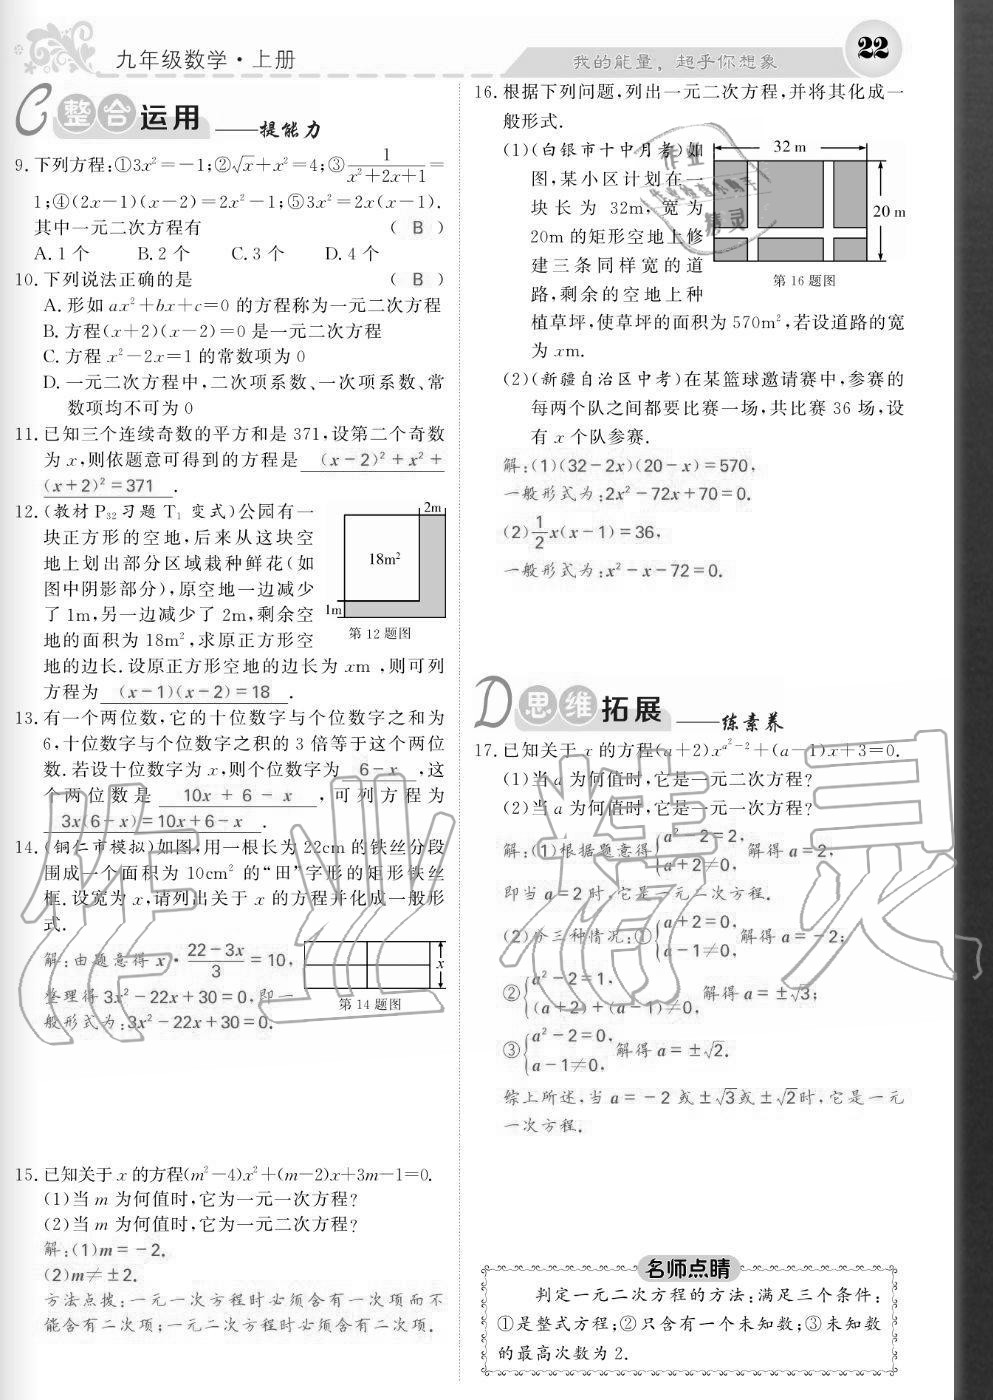 九年级数学·上册
我的能量，超乎你想象
22
C 整合运用 ——提能力
9. 下列方程:①3x²=-1;②√x+x²=4;③1/(x²+2x+1)=
1;④(2x-1)(x-2)=2x²-1;⑤3x²=2x(x-1).
其中一元二次方程有 ( B )
A. 1 个 B. 2 个 C. 3 个 D. 4 个
10. 下列说法正确的是 ( B )
A. 形如 ax²+bx+c=0 的方程称为一元二次方程
B. 方程(x+2)(x-2)=0 是一元二次方程
C. 方程 x²-2x=1 的常数项为 0
D. 一元二次方程中,二次项系数、一次项系数、常
数项均不可为 0
11. 已知三个连续奇数的平方和是 371,设第二个奇数
为 x,则依题意可得到的方程是 (x-2)²+x²+
(x+2)²=371 .
12. (教材 P32 习题 T1 变式)公园有一
块正方形的空地,后来从这块空
地上划出部分区域栽种鲜花(如
图中阴影部分),原空地一边减少
了 1m,另一边减少了 2m,剩余空
地的面积为 18m²,求原正方形空
地的边长. 设原正方形空地的边长为 xm ,则可列
方程为 (x-1)(x-2)=18 .
2m
18m²
1m
第 12 题图
13. 有一个两位数,它的十位数字与个位数字之和为
6,十位数字与个位数字之积的 3 倍等于这个两位
数. 若设十位数字为 x,则个位数字为 6-x ,这
个两位数是 10x + 6 - x ,可列方程为
3x(6-x)=10x+6-x .
14. (铜仁市模拟)如图,用一根长为 22cm 的铁丝分段
围成一个面积为 10cm² 的“田”字形的矩形铁丝
框. 设宽为 x,请列出关于 x 的方程并化成一般形
式.
解:由题意得 x·(22-3x)/3=10,
整理得 3x²-22x+30=0,即一
般形式为:3x²-22x+30=0.
x
第 14 题图
15. 已知关于 x 的方程(m²-4)x²+(m-2)x+3m-1=0.
(1)当 m 为何值时,它为一元一次方程?
(2)当 m 为何值时,它为一元二次方程?
解:(1)m=-2.
(2)m≠±2.
方法点拨:一元一次方程时必须含有一次项而不
能含有二次项;一元二次方程时必须含有二次项.
16. 根据下列问题,列出一元二次方程,并将其化成一
般形式.
(1)(白银市十中月考)如
图,某小区计划在一
块长为 32m,宽为
20m 的矩形空地上修
建三条同样宽的道
路,剩余的空地上种
植草坪,使草坪的面积为 570m²,若设道路的宽
为 xm.
32 m
20 m
第 16 题图
(2)(新疆自治区中考)在某篮球邀请赛中,参赛的
每两个队之间都要比赛一场,共比赛 36 场,设
有 x 个队参赛.
解:(1)(32-2x)(20-x)=570,
一般形式为:2x²-72x+70=0.
(2)1/2x(x-1)=36,
一般形式为:x²-x-72=0.
D 思维拓展 ——练素养
17. 已知关于 x 的方程(a+2)x^(a²-2)+(a-1)x+3=0.
(1)当 a 为何值时,它是一元二次方程?
(2)当 a 为何值时,它是一元一次方程?
解:(1)根据题意得{a²-2=2, a+2≠0, 解得 a=2,
即当 a=2 时,它是一元二次方程.
(2)分三种情况:①{a+2=0, a-1≠0, 解得 a=-2;
②{a²-2=1, (a+2)+(a-1)≠0, 解得 a=±√3;
③{a²-2=0, a-1≠0, 解得 a=±√2.
综上所述,当 a=-2 或±√3或±√2时,它是一元
一次方程.
名师点睛
判定一元二次方程的方法:满足三个条件:
①是整式方程;②只含有一个未知数;③未知数
的最高次数为 2.
作业精灵